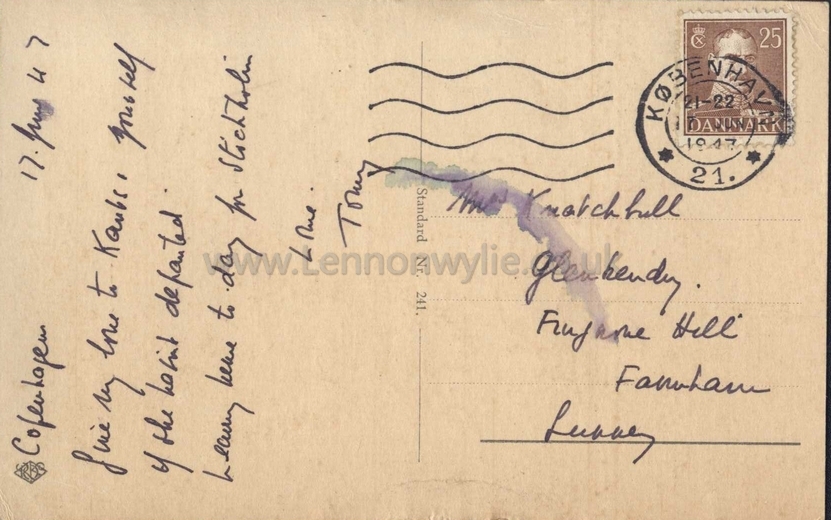 Copenhagen 17. June 47
Give my love to &  yourself
if she hasn't departed.
Leaving here to day for Stockholm
Love.
Tony
Standard Nr. 241.
25
DANMARK
KØBENHAVN
21-22
JUN
1947
21.
Mrs Knatchbull
Glenkendry.
Hill
Farnham
Surrey
www.Lennonwylie.co.uk